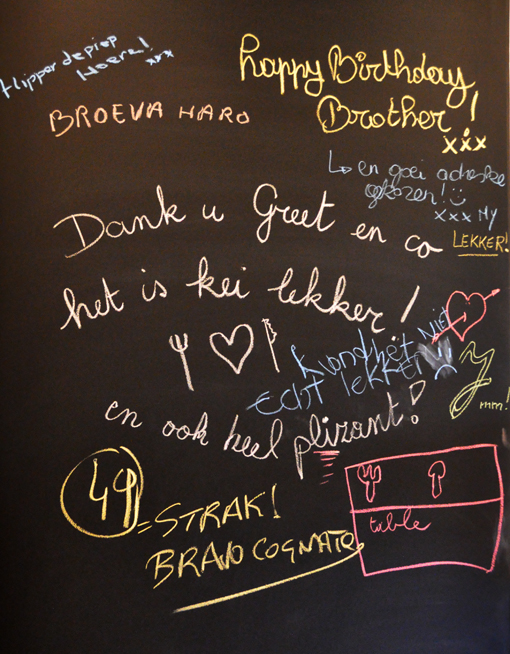 flipper de piep
Hoera! xxx
happy Birthday
Brother!
xxx
BROEVA HARO
↳ en goei adreske
gekozen! ☺
xxx My
Dank u Greet en co
LEKKER!
het is kei lekker!
k vond het NIET
ECHT lekker
mm!
en ook heel plizant!
49
= STRAK!
BRAVO COGNATO
table